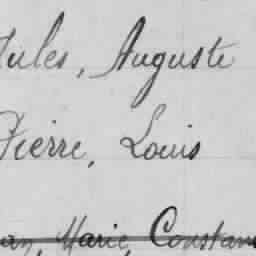 Jules, Auguste
Pierre, Louis
Marie, Constant